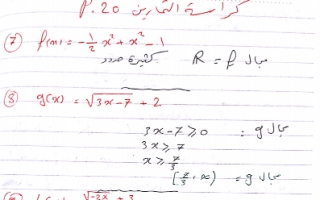 كراسة التمارين P.20
⑦ f(x) = -½x³ + x² - 1
كثيرة حدود مجال f = R
⑧ g(x) = √3x-7 + 2
3x - 7 ≥ 0 : مجال g
3x ≥ 7
x ≥ 7/3
[7/3 , ∞) = مجال g
√-2x + 3